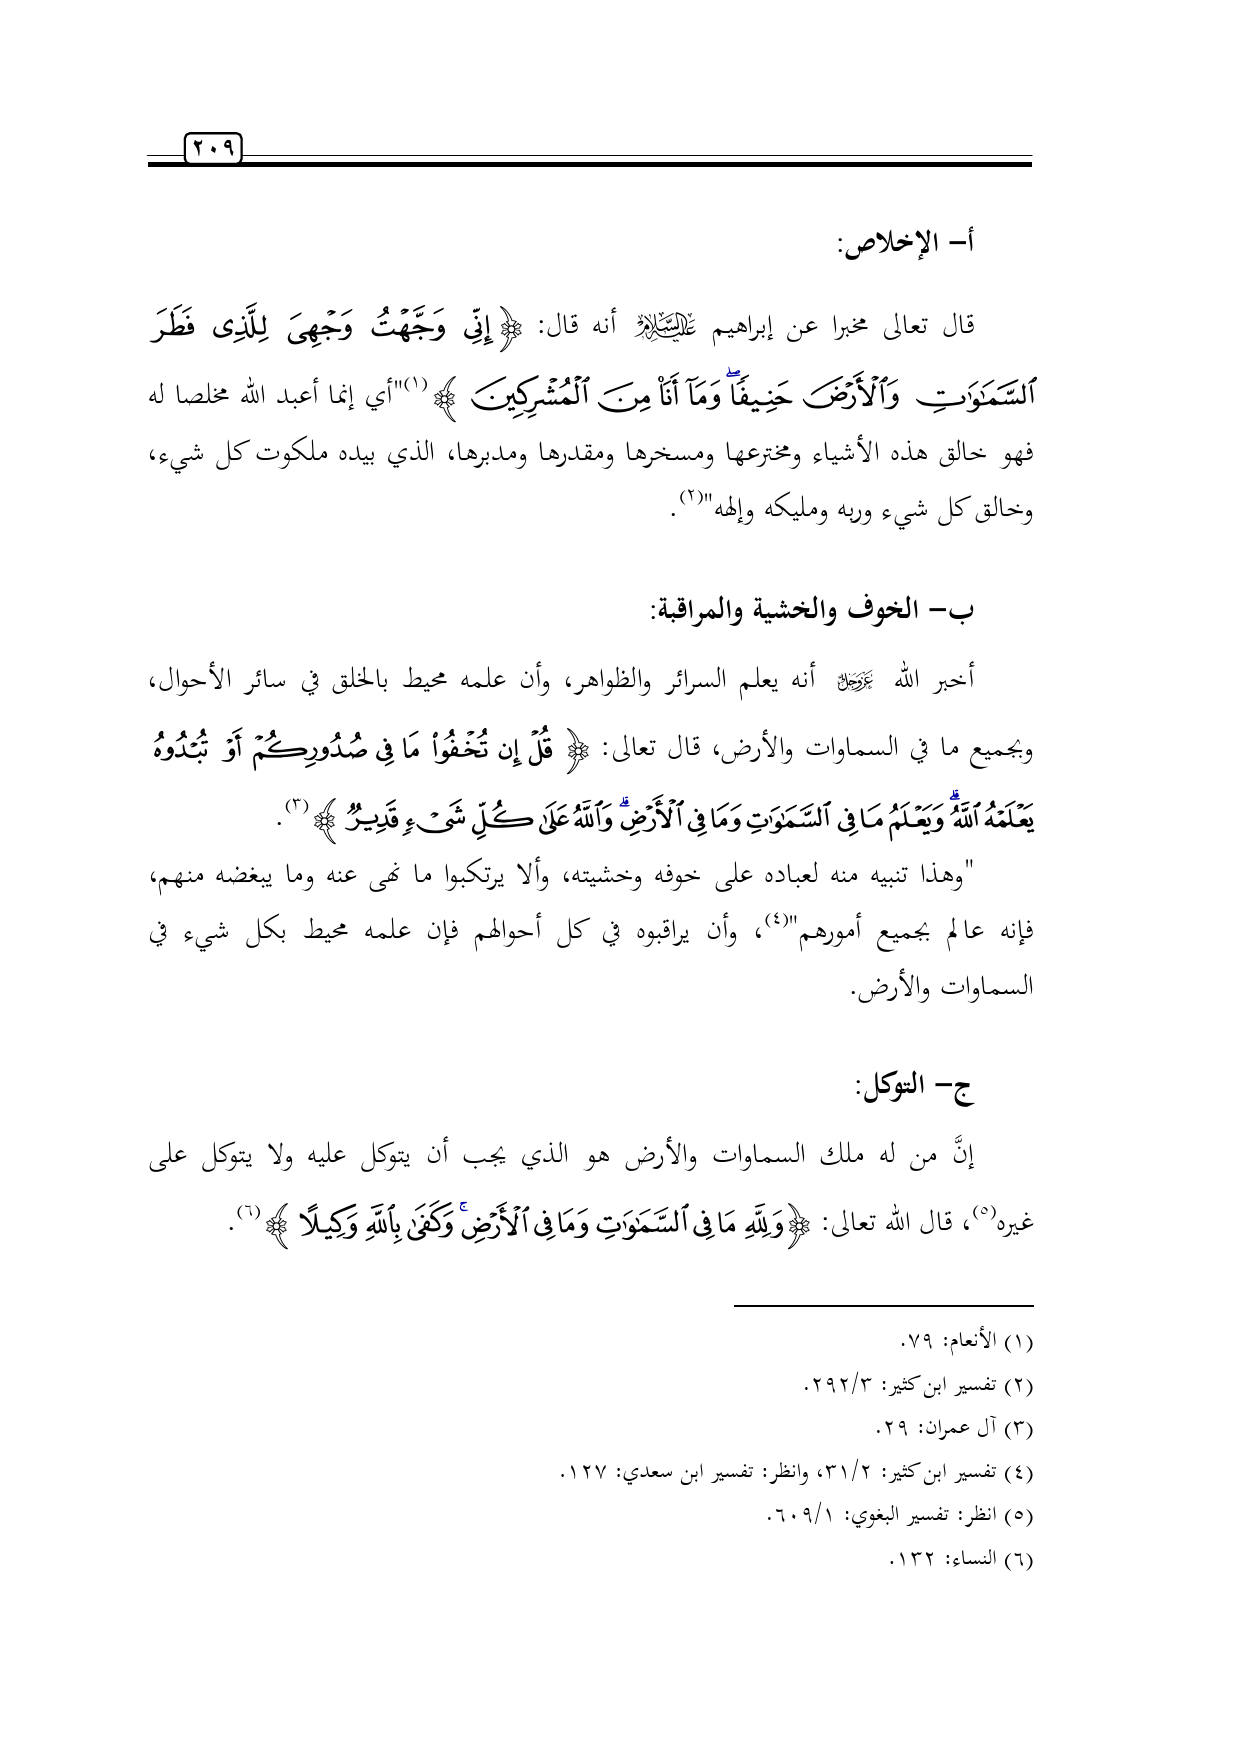 ٢٠٩
أ– الإخلاص:
قال تعالى مخبرا عن إبراهيم عليه السلام أنه قال: ﴿إِنِّي وَجَّهۡتُ وَجۡهِيَ لِلَّذِي فَطَرَ
ٱلسَّمَٰوَٰتِ وَٱلۡأَرۡضَ حَنِيفٗاۖ وَمَآ أَنَا۠ مِنَ ٱلۡمُشۡرِكِينَ﴾(١)"أي إنما أعبد الله مخلصا له
فهو خالق هذه الأشياء ومخترعها ومسخرها ومقدرها ومدبرها، الذي بيده ملكوت كل شيء،
وخالق كل شيء وربه ومليكه وإلهه"(٢).
ب– الخوف والخشية والمراقبة:
أخبر الله عز وجل أنه يعلم السرائر والظواهر، وأن علمه محيط بالخلق في سائر الأحوال،
وبجميع ما في السماوات والأرض، قال تعالى: ﴿قُلۡ إِن تُخۡفُواْ مَا فِي صُدُورِكُمۡ أَوۡ تُبۡدُوهُ
يَعۡلَمۡهُ ٱللَّهُۗ وَيَعۡلَمُ مَا فِي ٱلسَّمَٰوَٰتِ وَمَا فِي ٱلۡأَرۡضِۗ وَٱللَّهُ عَلَىٰ كُلِّ شَيۡءٖ قَدِيرٞ﴾(٣).
"وهذا تنبيه منه لعباده على خوفه وخشيته، وألا يرتكبوا ما نهى عنه وما يبغضه منهم،
فإنه عالم بجميع أمورهم"(٤)، وأن يراقبوه في كل أحوالهم فإن علمه محيط بكل شيء في
السماوات والأرض.
ج– التوكل:
إنَّ من له ملك السماوات والأرض هو الذي يجب أن يتوكل عليه ولا يتوكل على
غيره(٥)، قال الله تعالى: ﴿وَلِلَّهِ مَا فِي ٱلسَّمَٰوَٰتِ وَمَا فِي ٱلۡأَرۡضِۚ وَكَفَىٰ بِٱللَّهِ وَكِيلًا﴾(٦).
(١) الأنعام: ٧٩.
(٢) تفسير ابن كثير: ٢٩٢/٣.
(٣) آل عمران: ٢٩.
(٤) تفسير ابن كثير: ٣١/٢، وانظر: تفسير ابن سعدي: ١٢٧.
(٥) انظر: تفسير البغوي: ٦٠٩/١.
(٦) النساء: ١٣٢.